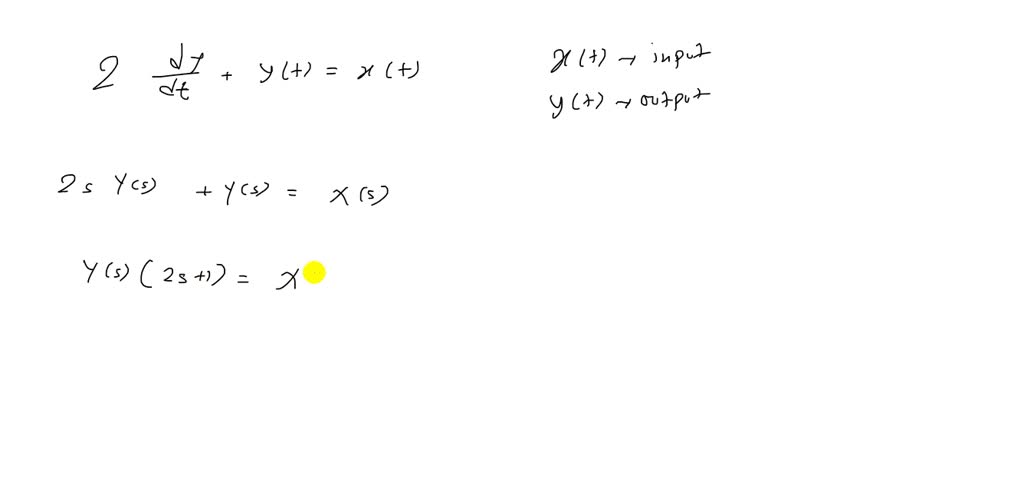 2 dy/dt + y(t) = x(t)
x(t) → input
y(t) → output
2s Y(s) + Y(s) = X(s)
Y(s) (2s+1) = X